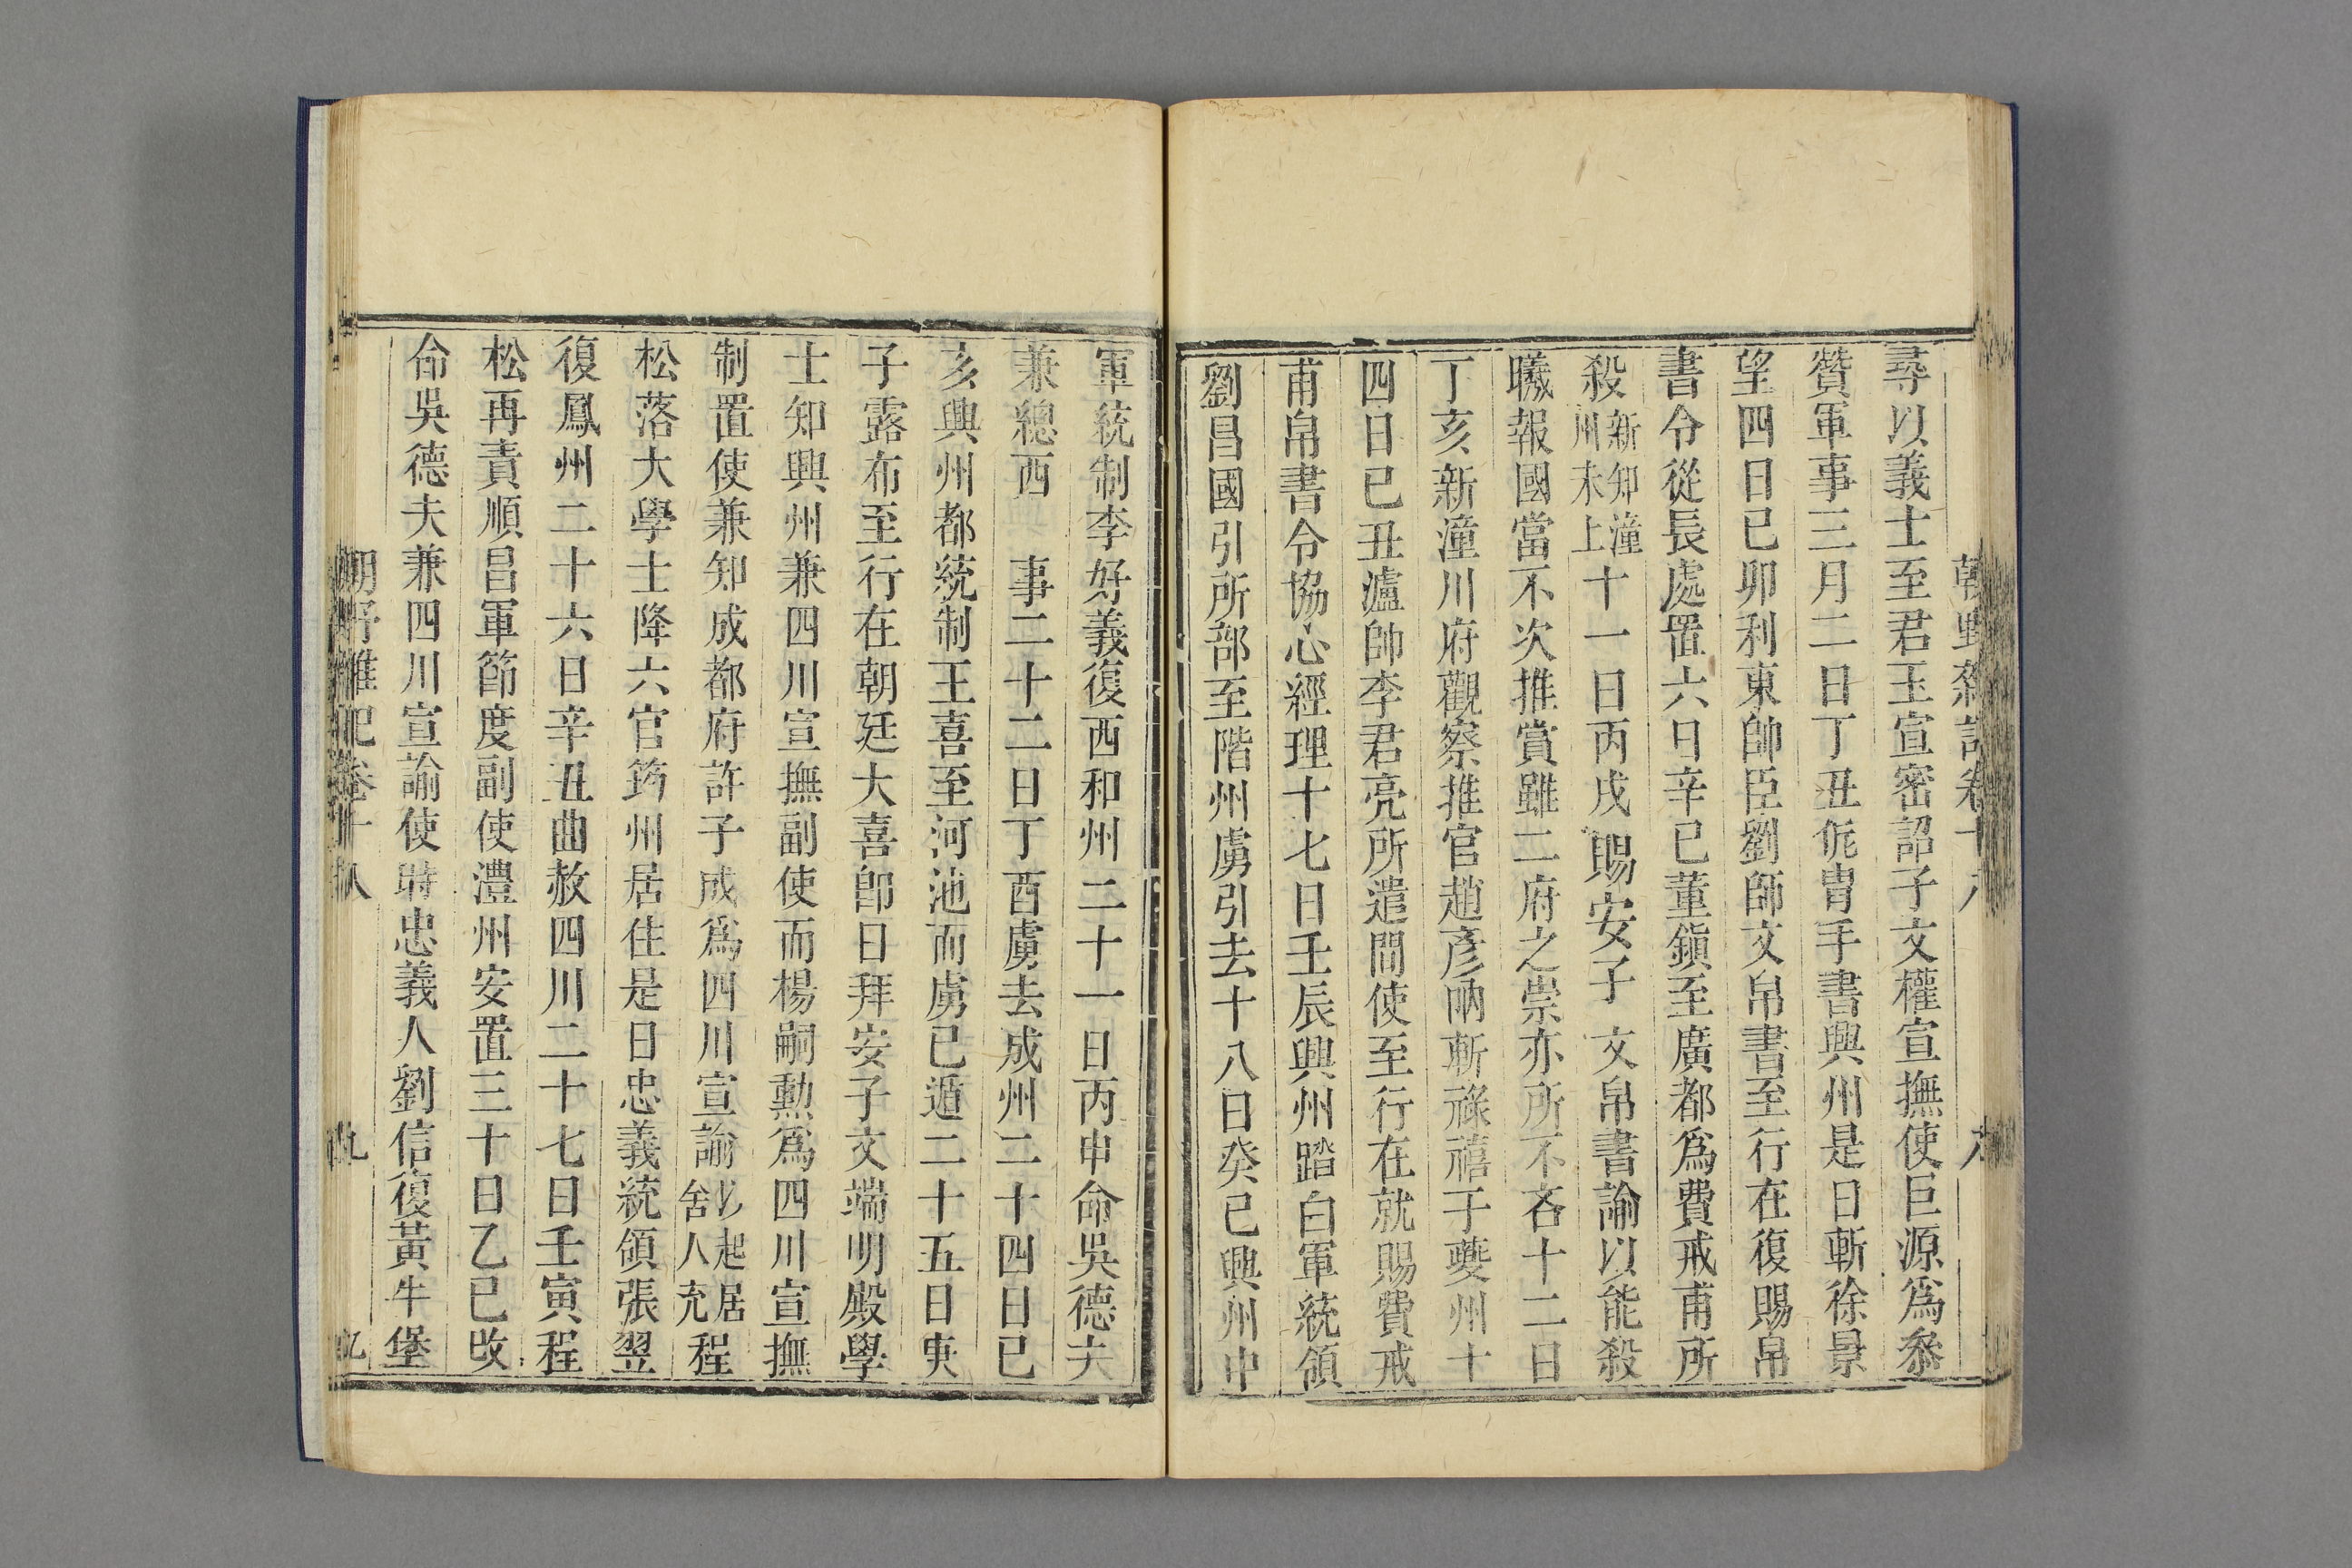 尋以義士至君玉宣密詔子文權宣撫使巨源爲叅
贊軍事三月二日丁丑侂冑手書興州是日斬徐景
望四日已卯利東帥臣劉師文帛書至行在復賜帛
書令從長處置六日辛已董鎭至廣都爲費戒甫所
殺新知潼州未上十一日丙戌賜安子文帛書諭以能殺
曦報國當不次推賞雖二府之崇亦所不吝十二日
丁亥新潼川府觀察推官趙彥吶斬祿禧于夔州十
四日已丑瀘帥李君亮所遣間使至行在就賜費戒
甫帛書令協心經理十七日壬辰興州踏白軍統領
劉昌國引所部至階州虜引去十八日癸已興州中
軍統制李好義復西和州二十一日丙申命吳德夫
兼總西 事二十二日丁酉虜去成州二十四日已
亥興州都統制王喜至河池而虜已遁二十五日庚
子露布至行在朝廷大喜卽日拜安子文端明殿學
士知興州兼四川宣撫副使而楊嗣勳爲四川宣撫
制置使兼知成都府許子成爲四川宣諭以起居舍人充程
松落大學士降六官筠州居住是日忠義統領張翌
復鳳州二十六日辛丑曲赦四川二十七日壬寅程
松再責順昌軍節度副使澧州安置三十日乙已改
命吳德夫兼四川宣諭使時忠義人劉信復黃牛堡
朝野雜記卷十八
九